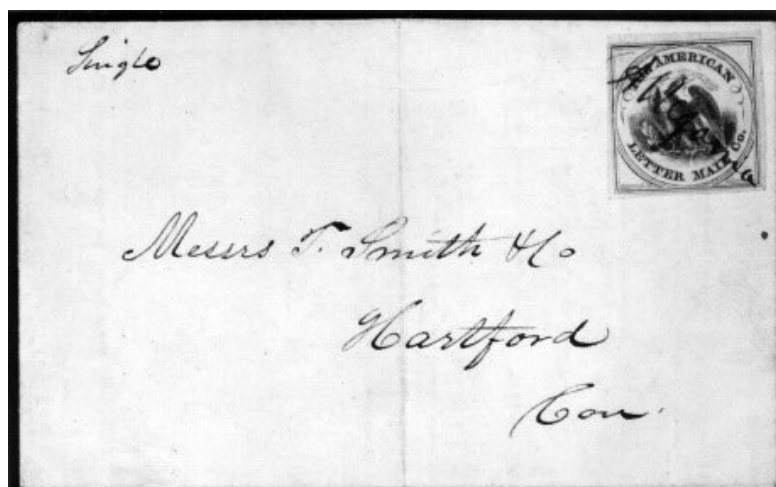 Single
THE AMERICAN
LETTER MAIL Co.
Messrs T. Smith & Co
Hartford
Con.